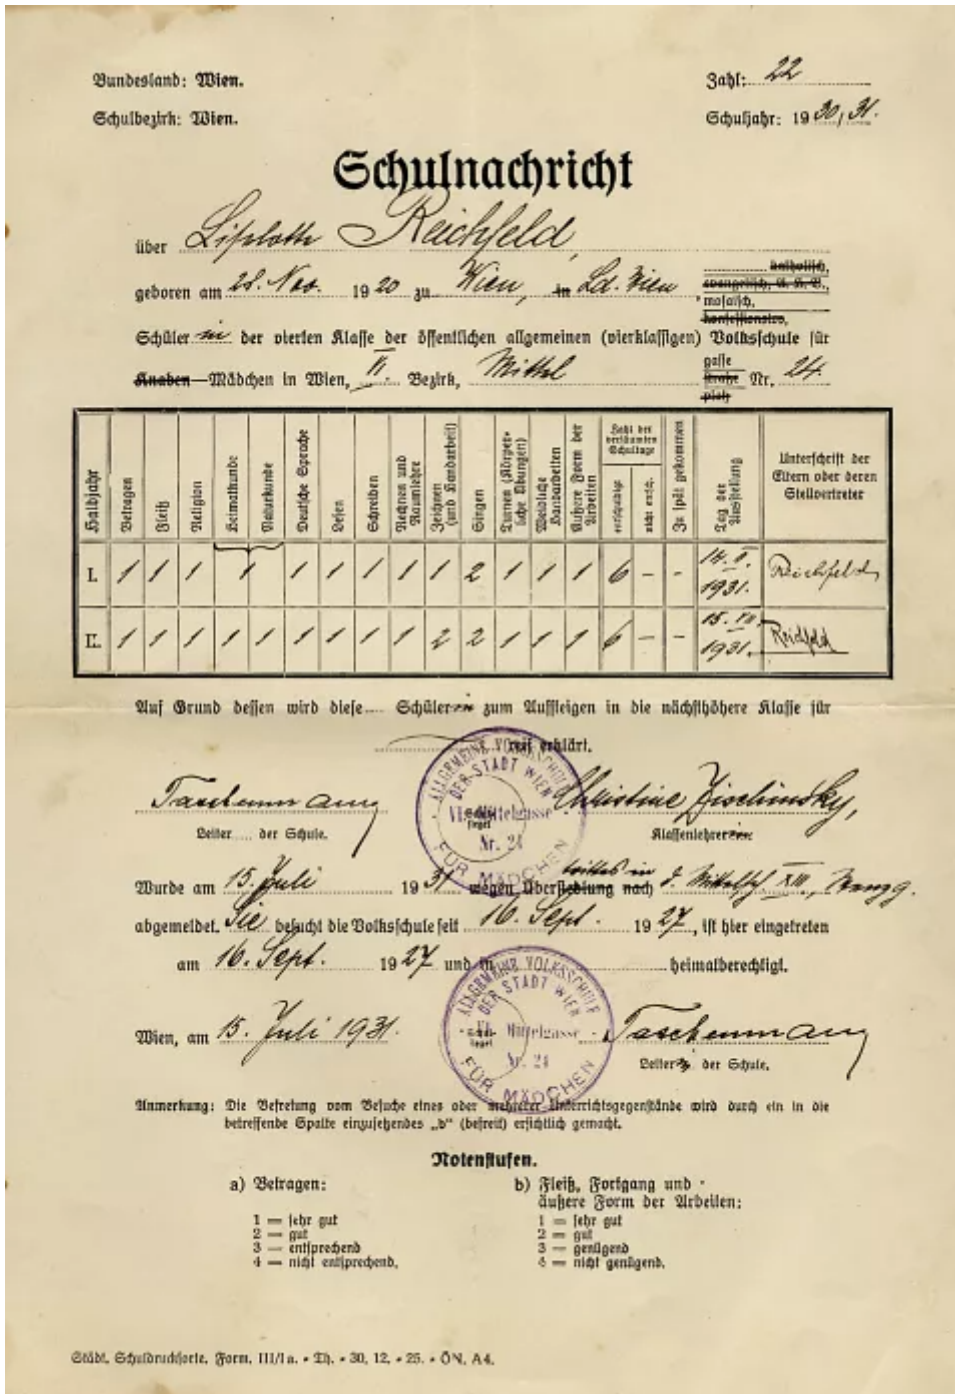 Bundesland: Wien.
Zahl: 22
Schulbezirk: Wien.
Schuljahr: 1930/31.
Schulnachricht
über Liselotte Reichfeld,
geboren am 28. Nov. 1920 zu Wien, in Ld. Wien
katholisch,
evangelisch, A. K. B.,
mosaisch,
konfessionslos,
Schülerin der vierten Klasse der öffentlichen allgemeinen (vierklassigen) Volksschule für
Knaben—Mädchen in Wien, VI. Bezirk, Mittel gasse straße platz Nr. 24
Halbjahr Betragen Fleiß Religion Heimatkunde Naturkunde Deutsche Sprache Lesen Schreiben Rechnen und Raumlehre Zeichnen (und Handarbeit) Singen Turnen (Körperliche Übungen) Weibliche Handarbeiten Äußere Form der Arbeiten Zahl der versäumten Schultage entschuldigt nicht entsch. Zu spät gekommen Tag der Ausstellung Unterschrift der Eltern oder deren Stellvertreter
I. 1 1 1 1 1 1 1 1 1 2 1 1 1 6 – – 14. II. 1931. Reichfeld
II. 1 1 1 1 1 1 1 1 1 2 2 1 1 1 6 – – 15. VII. 1931. Reichfeld
Auf Grund dessen wird diese Schülerin zum Aufsteigen in die nächsthöhere Klasse für
reif erklärt.
Christine Zischinsky,
Leiter der Schule.
Klassenlehrerin
ALLGEMEINE VOLKSSCHULE DER STADT WIEN VI. Mittelgasse Nr. 24 FÜR MÄDCHEN
Schulsiegel
Wurde am 15. Juli 1931 wegen Übersiedlung nach d. Mittelsch. XIII.,
abgemeldet. Sie besucht die Volksschule seit 16. Sept. 1927, ist hier eingetreten
am 16. Sept. 1927 und in heimatberechtigt.
ALLGEMEINE VOLKSSCHULE DER STADT WIEN VI. Mittelgasse Nr. 24 FÜR MÄDCHEN
Schulsiegel
Wien, am 15. Juli 1931.
Leiter der Schule.
Anmerkung: Die Befreiung vom Besuche eines oder mehrerer Unterrichtsgegenstände wird durch ein in die
betreffende Spalte einzusetzendes „b“ (befreit) ersichtlich gemacht.
Notenstufen.
a) Betragen:
1 = sehr gut
2 = gut
3 = entsprechend
4 = nicht entsprechend.
b) Fleiß, Fortgang und
äußere Form der Arbeiten:
1 = sehr gut
2 = gut
3 = genügend
4 = nicht genügend.
Städt. Schuldrucksorte. Form. III/1a. • Th. • 30. 12. • 25. • ÖN. A4.